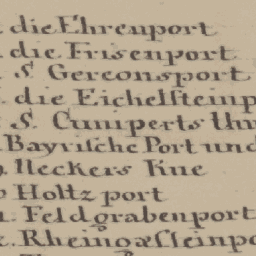 die Ehrenport
die Frisenport
S. Gereonsport
die Eichelsteinp
S. Cuniperts
Bayrische Port und
Neckers Kue
Holtz port
Feldgrabenport
Rheing